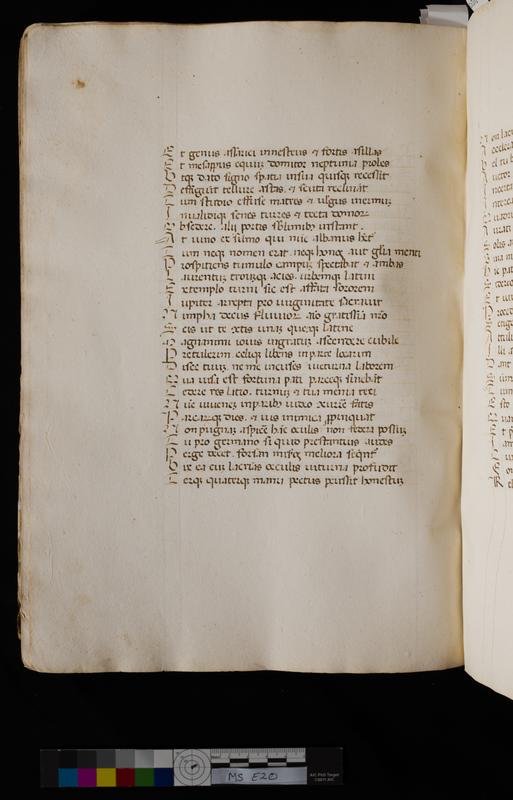 Et genus assaraci mnesteus et fortis asillas
Et mesapus equum domitor neptunia proles
Utqz dato signo spatia insua quisqz recessit
Deffigunt tellure astas. et scuta reclināt
Tum studio effuse matres et vulgus inermum
Inualidiqz senes turres et tecta domorum
Obsedere. alii portis sublimibz instant.
At iuno et sūmo qui nūc albanus hētur
Tum neqz nomen erat neqz honos aut glīa menti
Prospitiens tumulo campum spectabat et ambas
Laurentum troumqz acies. urbemqz latini
Extemplo turni sic est affata sororem
Iupiter arrepta pro uirginitate sacrauit
Nimpha decus fluuiorum aīo gratissīa nr̄o
Scis ut te cuntis unam quecqz latine
Magnanimi iouis ingratum ascendere cubile
Pretulerim celiqz libens inparte locarim
Disce tuum ne me incuses iuturna laborem
Qua uisa est fortuna pati parceqz sinebāt
Cedere res latio. turnum et tua menia texi
Nūc iuuenem inparibus uideo concurrere fatis
Parcarumqz dies. et uis inimica propinquat
Non pugnam aspicere hāc oculis non federa possum
Tu pro germano si quid presentius audes
Perge decet. forsan miseros meliora sequentur
Vix ea cum lacrimas occulis iuturna profudit
Terqz quaterqz manu pectus percussit honestum
MS E20